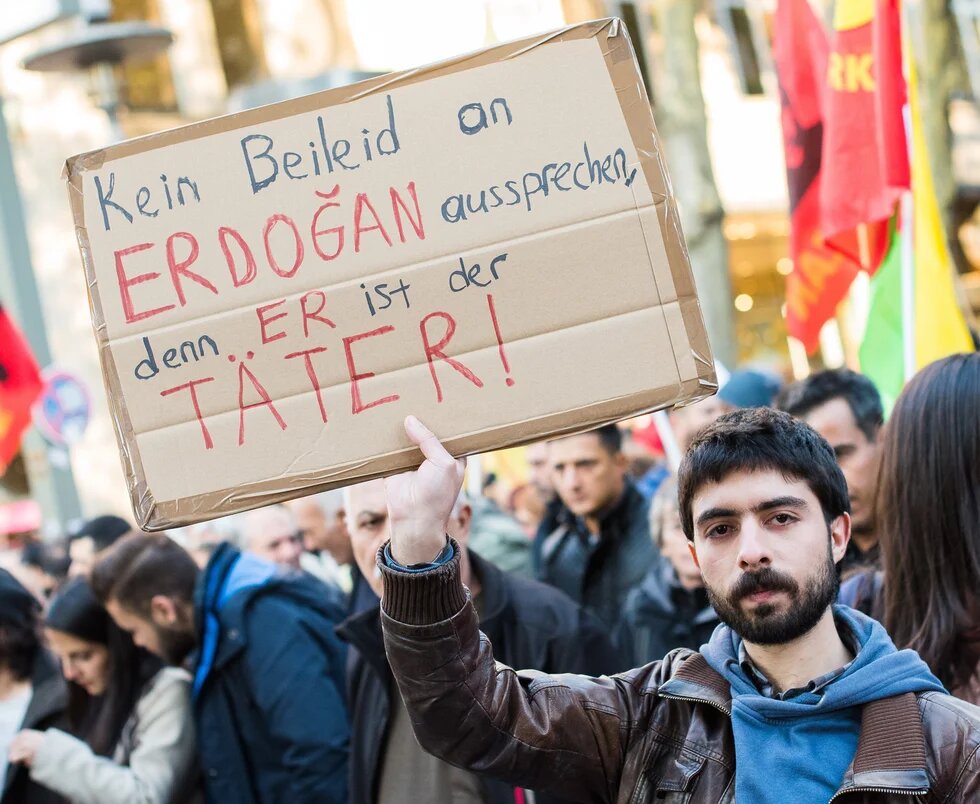 Kein Beileid an
ERDOĞAN aussprechen,
denn ER ist der
TÄTER!
RK